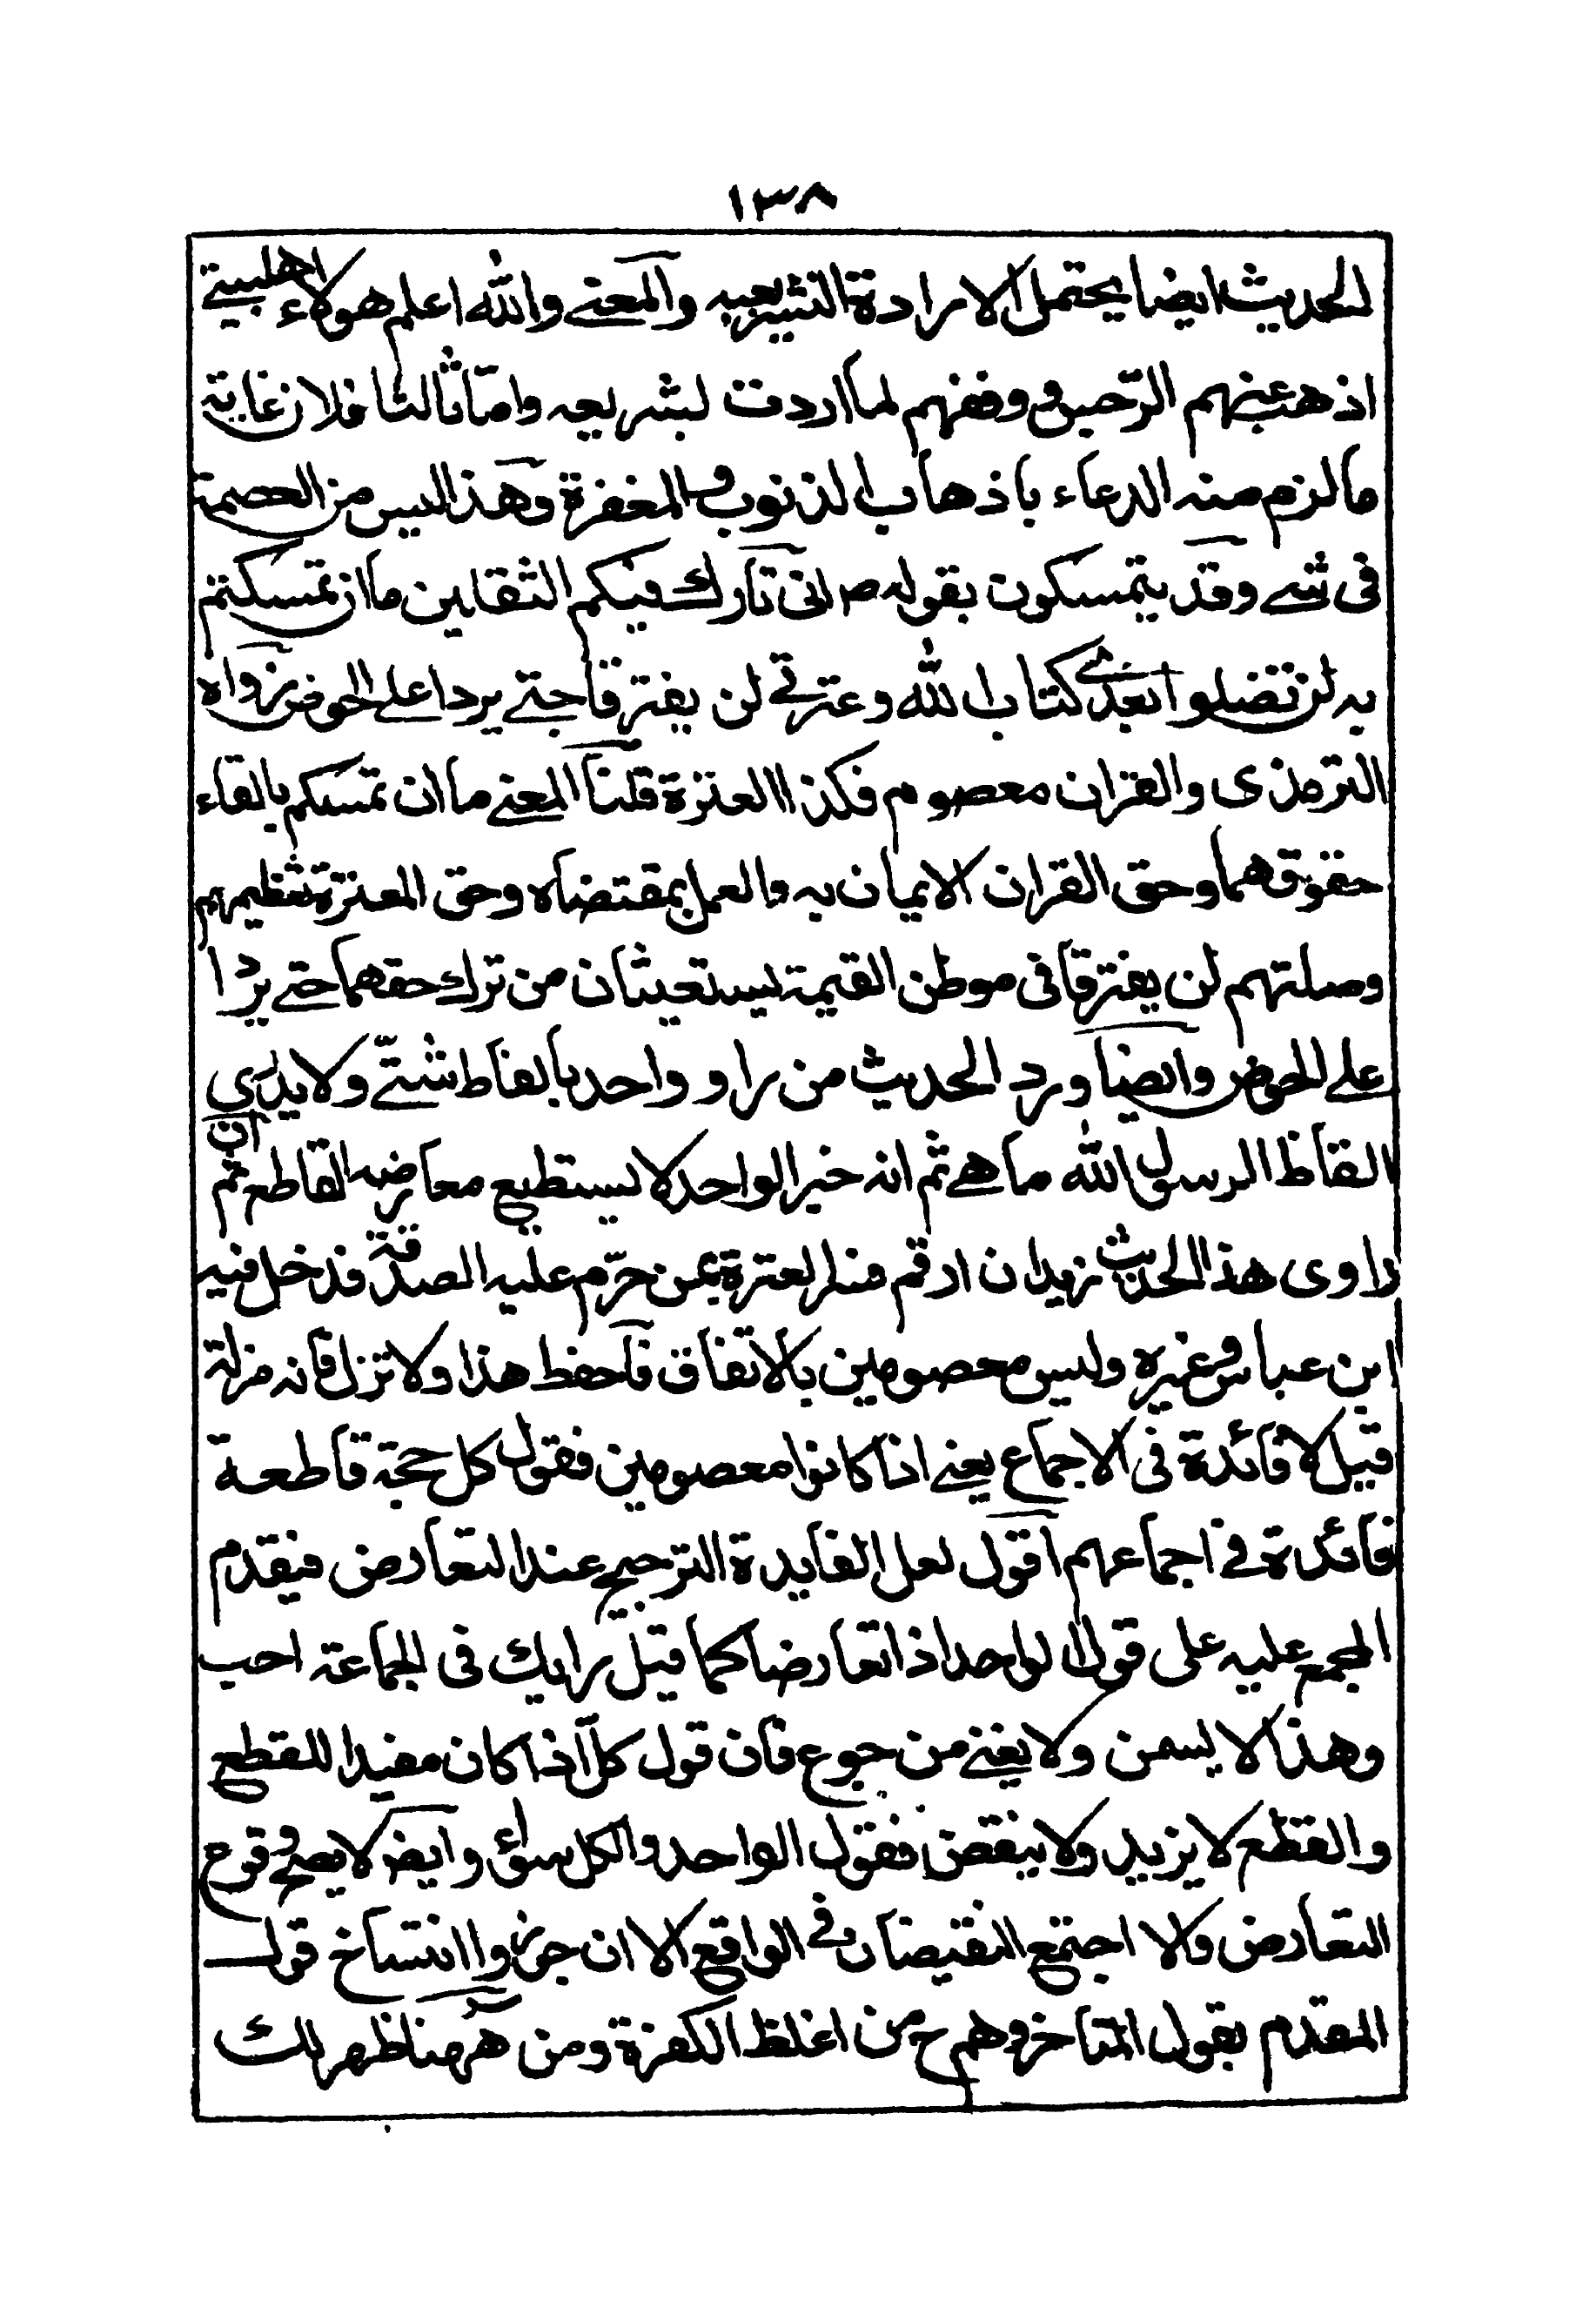 ١٣٨
الحديث ايضا يحتمل الارادة التشريعيه والمعنے والله اعلم هولاء اهلبيتے
اذهب عنهم الرجس و وفقهم لما اردت لبشريعه واما ثالثا فلان غاية
ما لزم منه الدعاء باذهاب الذنوب والمغفرة وهذا ليس من العصمة
فى شے وقد يتمسكون بقوله ص انى تارك فيكم الثقلين ما ان تمسكتم
به لن تضلوا بعدے كتاب الله وعترتے لن يفترقا حتے يردا علے الحوض رواه
الترمذى والقران معصوم فكذا العترة قلنا المعنے ما ان تمسكم بالقاء
حقوقهما وحق القران الايمان به والعمل بمقتضاه وحق العترة تعظيمهم
وصلتهم لن يفترقا فى موطن القيمة يستغيثان من ترك حقهما حتے يردا
علے الحوض وايضا ورد الحديث من راو واحد بالفاظ شتّے ولا يدرى ان
الفاظ الرسول الله ما هے ثم انه خبر الواحد لا يستطيع معارضه القاطع ثم
راوى هذا الحديث زيد ان ارقم فسر العترة بمن حرّم عليه الصدقة فدخل فيه
ابن عباس وغيره وليس معصومين بالاتفاق فاحفظ هذا ولا تزل فانه مزلة
قيل لا فائدة فى الاجماع يعنے اذا كانوا معصومين فقول كل حجة قاطعة
فائدة فے اجماعهم اقول لعل الفايدة الترجيح عند التعارض فيقدم
المجمع عليه على قول الواحد اذا تعارضا كما قيل رايك فى الجماعة احب
وهذا لا يسمن ولا يغنے من جوع فان قول كل اذا كان مفيدا للقطع
والقطع لا يزيد ولا ينقص فقول الواحد والكل سواء وايضا لا يصح وقوع
التعارض والا اجتمع النقيضان فے الواقع الا ان جوزوا انتساخ قول
المقدم بقول المتاخر وهم ح من اغلظ الكفرة ومن ههنا ظهر لك